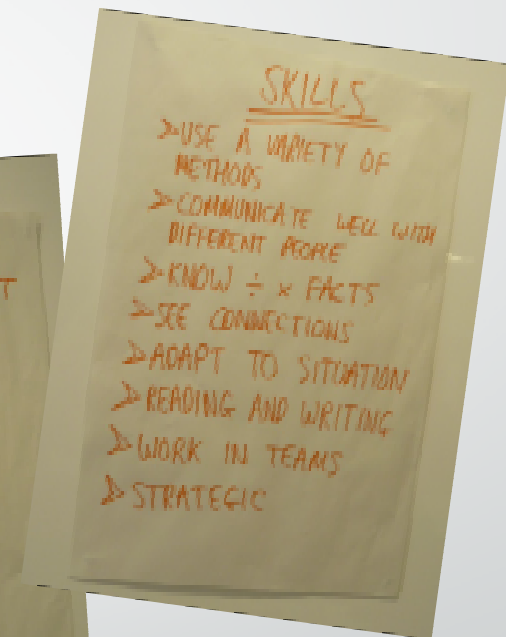 SKILLS
➢ USE A VARIETY OF
METHODS
➢ COMMUNICATE WELL WITH
DIFFERENT PEOPLE
➢ KNOW ÷ × FACTS
➢ SEE CONNECTIONS
➢ ADAPT TO SITUATION
➢ READING AND WRITING
➢ WORK IN TEAMS
➢ STRATEGIC
T